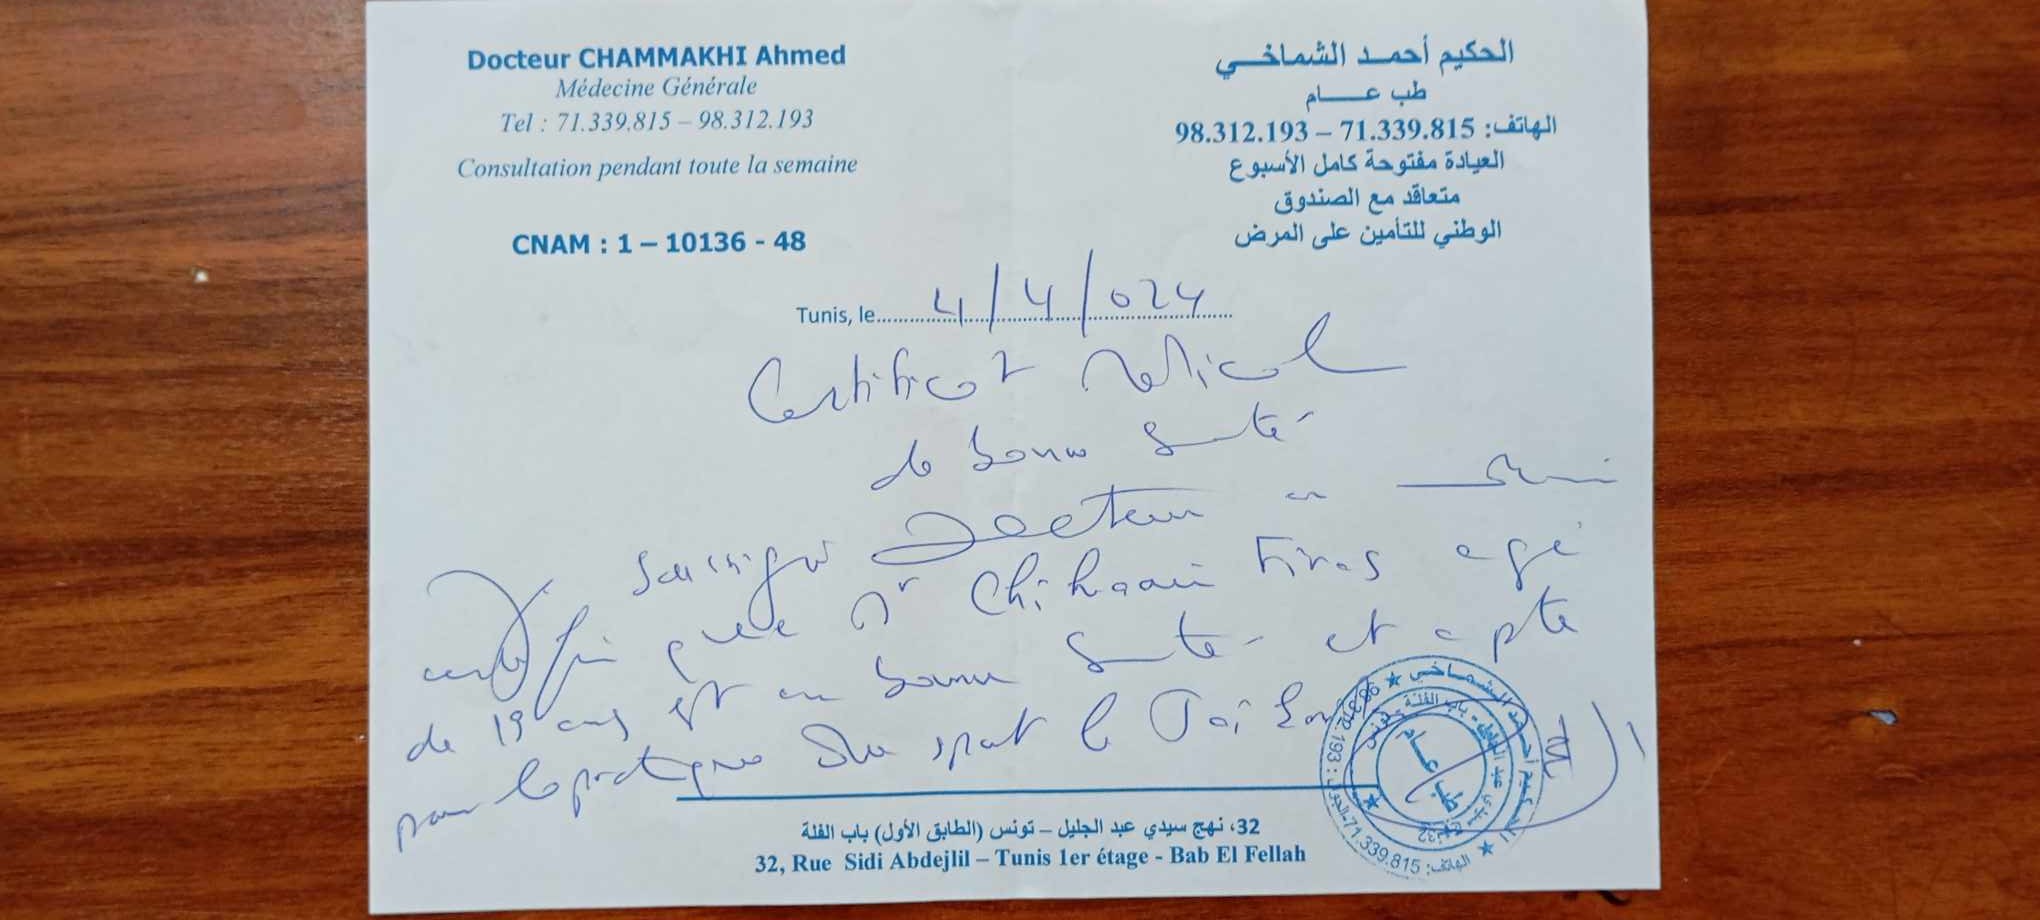 Docteur CHAMMAKHI Ahmed
Médecine Générale
Tel : 71.339.815 – 98.312.193
Consultation pendant toute la semaine
CNAM : 1 – 10136 - 48
الحكيم أحمد الشماخي
طب عام
الهاتف: 71.339.815 – 98.312.193
العيادة مفتوحة كامل الأسبوع
متعاقد مع الصندوق
الوطني للتأمين على المرض
Tunis, le 4/4/024
Certificat Médical
de bonne Santé
Je soussigné Docteur en
certifie que Mr Chihaoui Firas agé
de 19 ans est en bonne Santé et apte
pour la pratique du sport le
32، نهج سيدي عبد الجليل – تونس (الطابق الأول) باب الفلة
32, Rue Sidi Abdejlil – Tunis 1er étage - Bab El Fellah
الحكيم أحمد الشماخي ★ 98.312.193
الهاتف: 71.339.815
طب عام